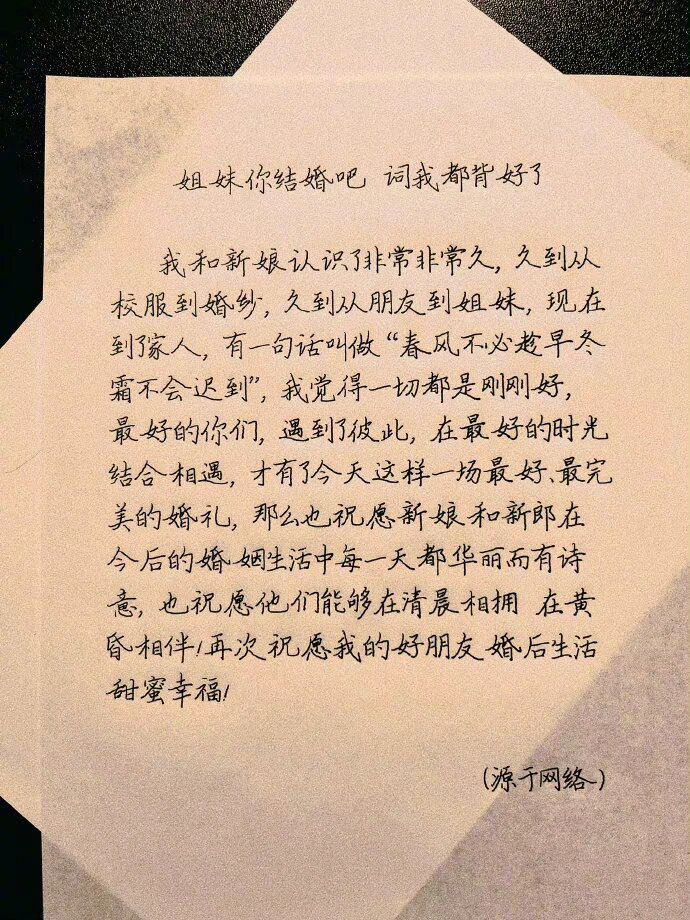 姐妹你结婚吧 词我都背好了
我和新娘认识了非常非常久，久到从
校服到婚纱，久到从朋友到姐妹，现在
到了家人，有一句话叫做“春风不必趁早冬
霜不会迟到”，我觉得一切都是刚刚好，
最好的你们，遇到了彼此，在最好的时光
结合相遇，才有了今天这样一场最好、最完
美的婚礼，那么也祝愿新娘和新郎在
今后的婚姻生活中每一天都华丽而有诗
意，也祝愿他们能够在清晨相拥 在黄
昏相伴！再次祝愿我的好朋友婚后生活
甜蜜幸福！
（源于网络）